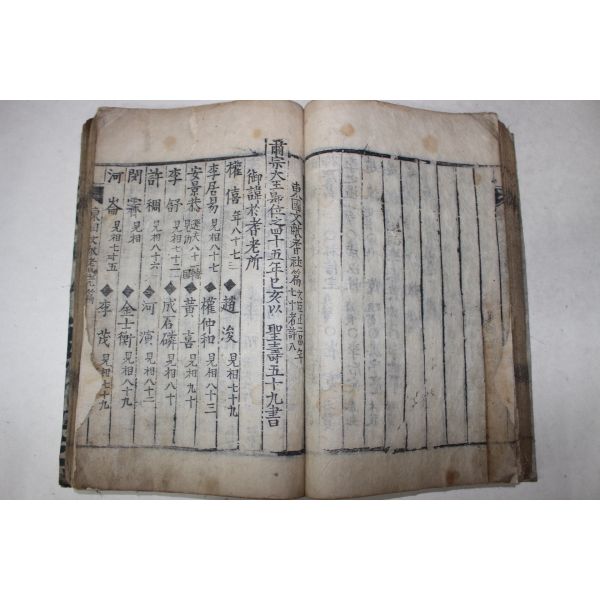 東國文獻耆社篇 文從正二品年七十者許入
肅宗大王即位之四十五年己亥以 聖壽五十九書
御諱於耆老所
權僖 年八十七 趙浚 見相七十九
李居易 見相八十七 權仲和 見相八十三
安景恭 黃喜 見相九十
李舒 見相七十二 成石磷 見相八十
許稠 見相八十六 河演 見相八十三
閔霽 見相 金士衡 見相八十九
河崙 見相七十五 李茂 見相七十九